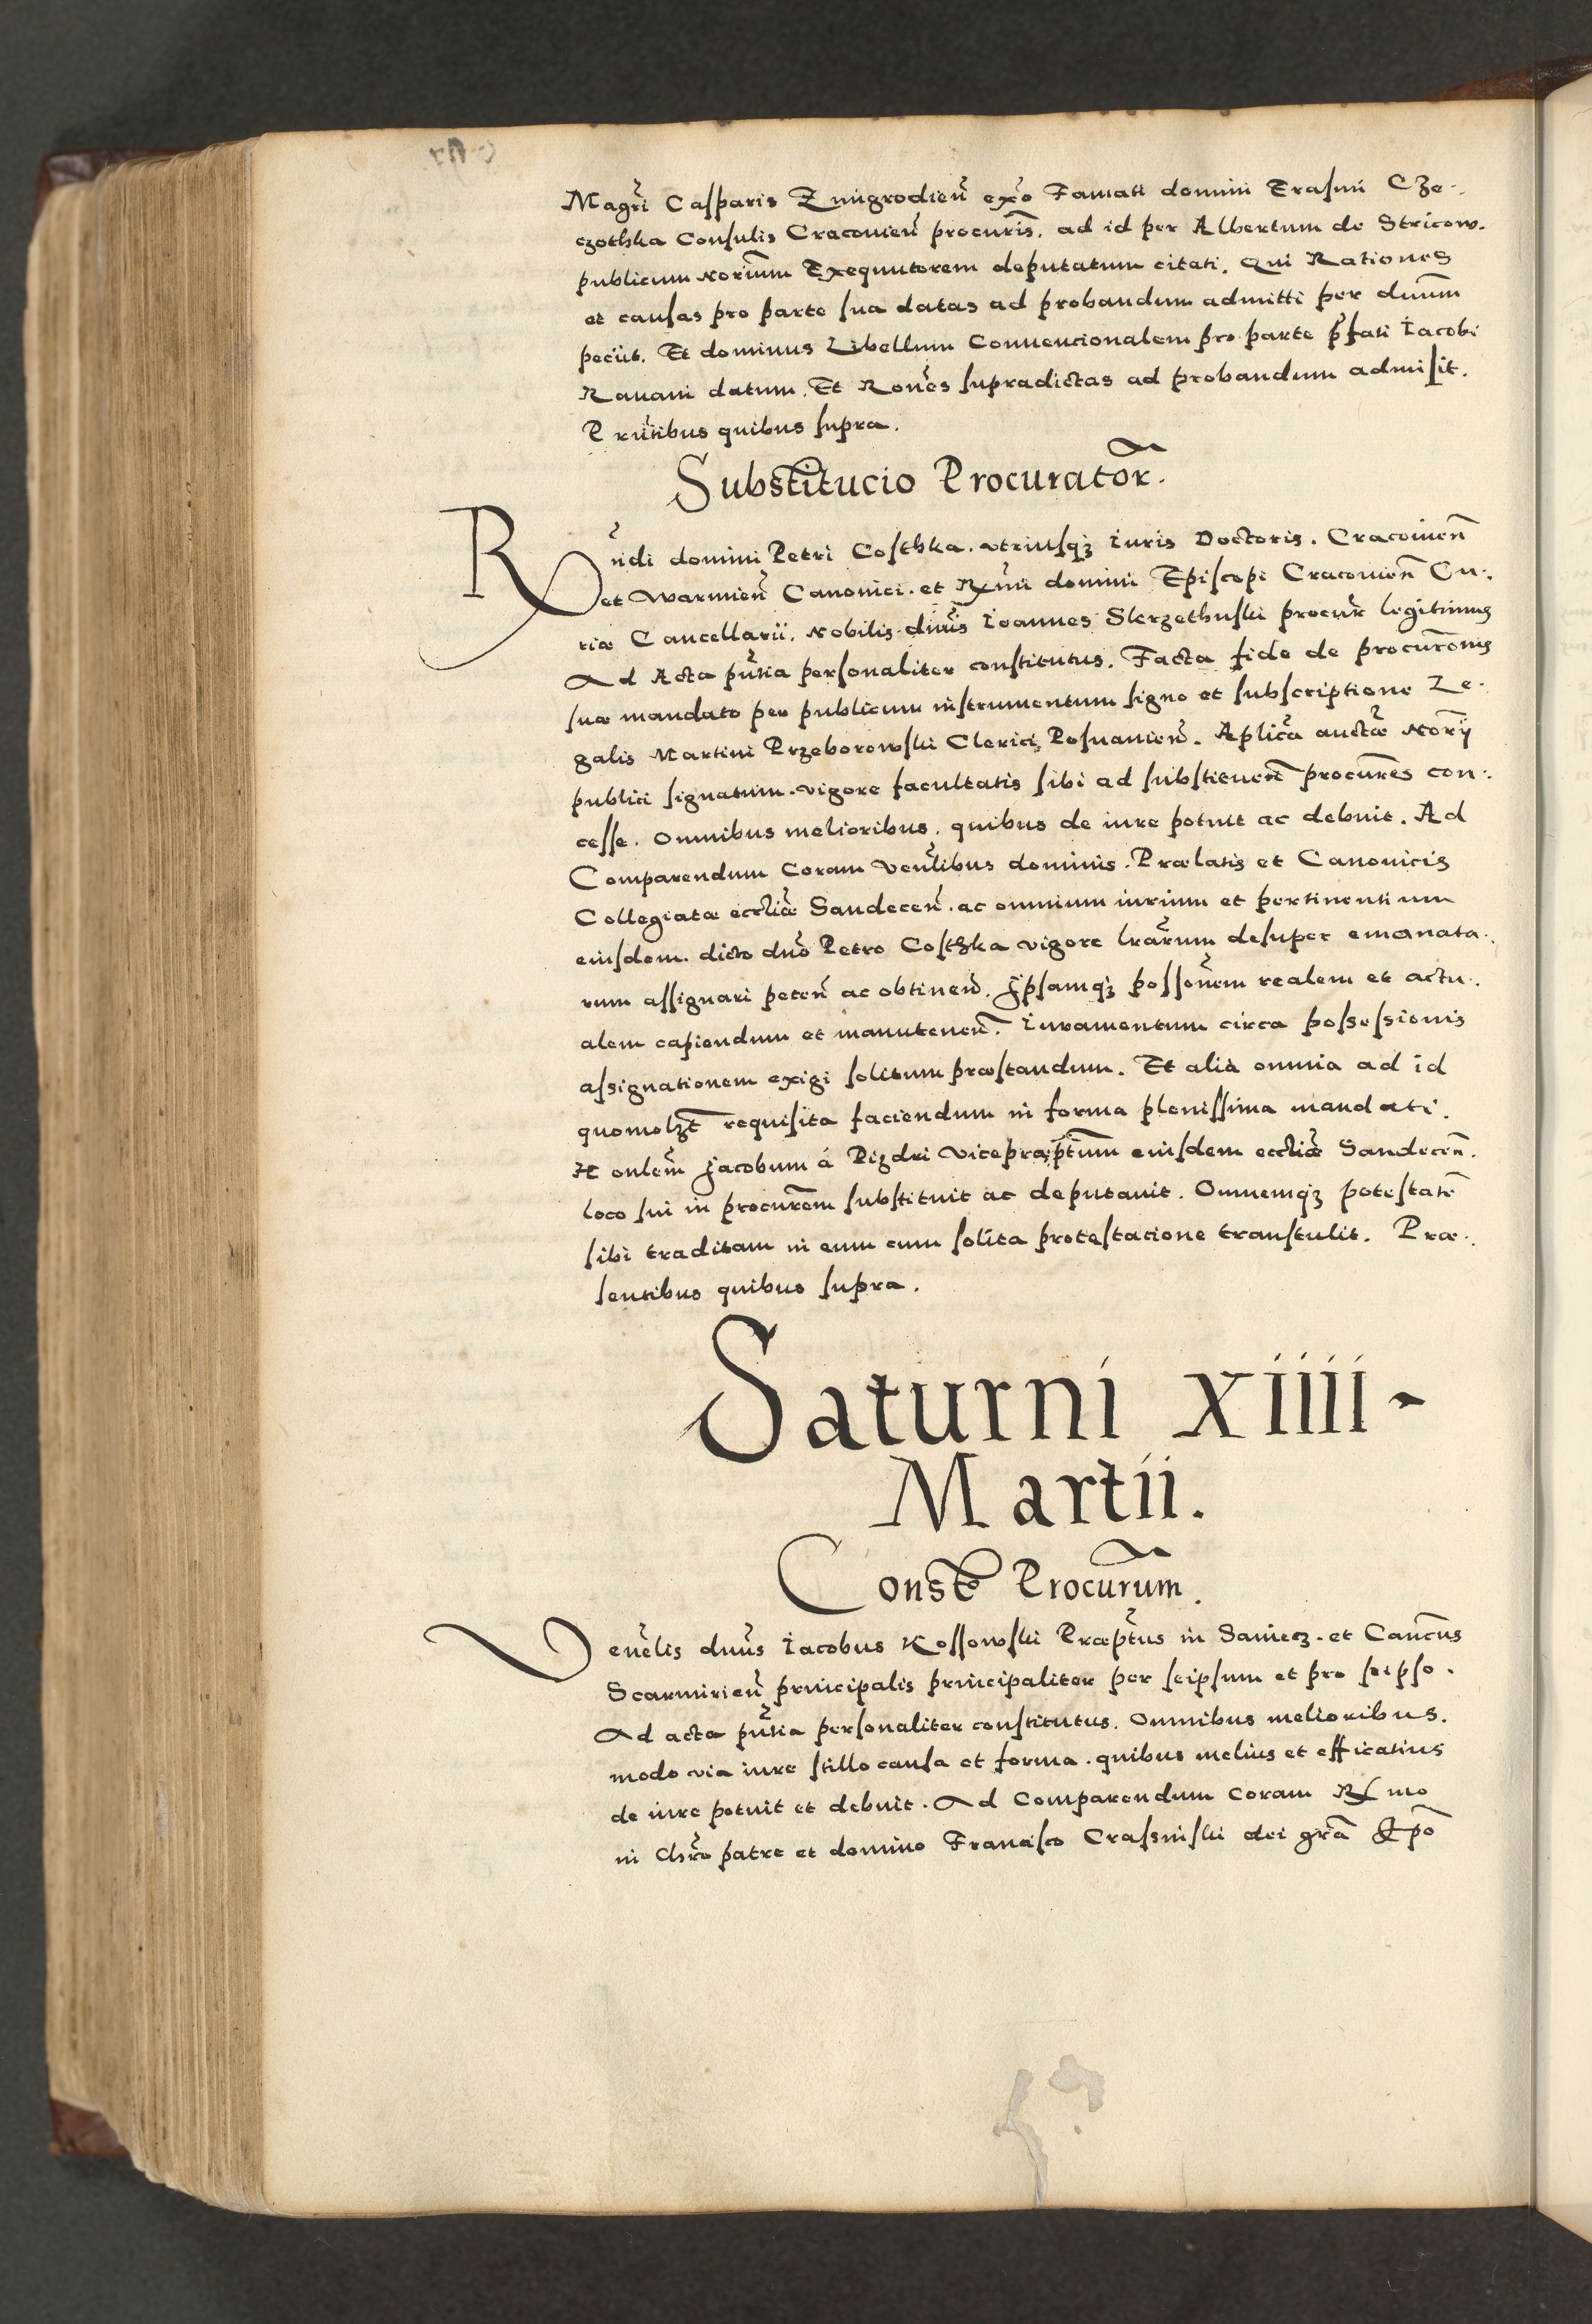 Magr̃i Casparis Zmigrodien̄ ex̃o Famati domini Erasmi Cze-
czothka Consulis Cracovien̄ procuris̃. ad id per Albertum de Stricow.
publicum Noriu̅m Exequutorem deputatum citati. Qui Rationes
et causas pro parte sua datas ad probandum admitti per dnu̅m
peciit. Et dominus Libellum Convencionalem pro parte p̃fati Iacobi
Ravani datum. Et Rones̃ supradictas ad probandum admisit.
Prntibus̃ quibus supra.
Substitucio Procurator̃.
Rn̄di domini Petri Costhka. utriusqz Iuris Doctoris. Cracovien̄
et Warmien̄ Canonici. et Rm̃i domini Episcopi Cracovien̄ Cu-
riæ Cancellarii. Nobilis dnu̅s Ioannes Skrzethuski procur̃ legitimus
Ad Acta pñtia personaliter constitutus. Facta fide de procurõnis
suæ mandato per publicum instrumentum signo et subscriptione Le-
galis Martini Przeborowski Clerici Posnanien̄. Aplica̅ aucta̅e Norij̃
publici signatum. vigore facultatis sibi ad substituen̄ procures̃ con-
cesse. Omnibus melioribus. quibus de iure potuit ac debuit. Ad
Comparendum Coram Venlibus̃ dominis. Prælatis et Canonicis
Collegiatæ eccliæ̃ Sandecen̄. ac omnium iurium et pertinentium
eiusdem. dicto dno̅ Petro Costhka vigore lrar̃um desuper emanata-
rum assignari peten̄ ac obtinen̄. Ipsamqz possone̅m realem et actu-
alem capiendum et manutenen̄. Iuramentum circa possessionis
assignationem exigi solitum præstandum. Et alia omnia ad id
quomolzt̃ requisita faciendum in forma plenissima mandati.
H onlem̃ Jacobum á Pizdri Vicepræptu̅m eiusdem eccliæ̃ Sandecen̄.
loco sui in procurem̃ substituit ac deputavit. Omnemqz potestate̅
sibi traditam in eum cum solita protestacione transtulit. Præ-
sentibus quibus supra.
Saturni xiiii -
Martii.
Const̃e Procurum̃.
Venelis̃ dnu̅s Iacobus Kossowski Præptus̃ in Saniecz. et Cancus̃
Scarmirien̄ principalis principaliter per seipsum et pro seipso.
Ad acta pñtia personaliter constitutus. Omnibus melioribus.
modo via iure stillo causa et forma. quibus melius et efficatius
de iure potuit et debuit. Ad Comparendum Coram R mo
in Chr̃o patre et domino Francisco Crasinski dei gr̃a Ep̃o